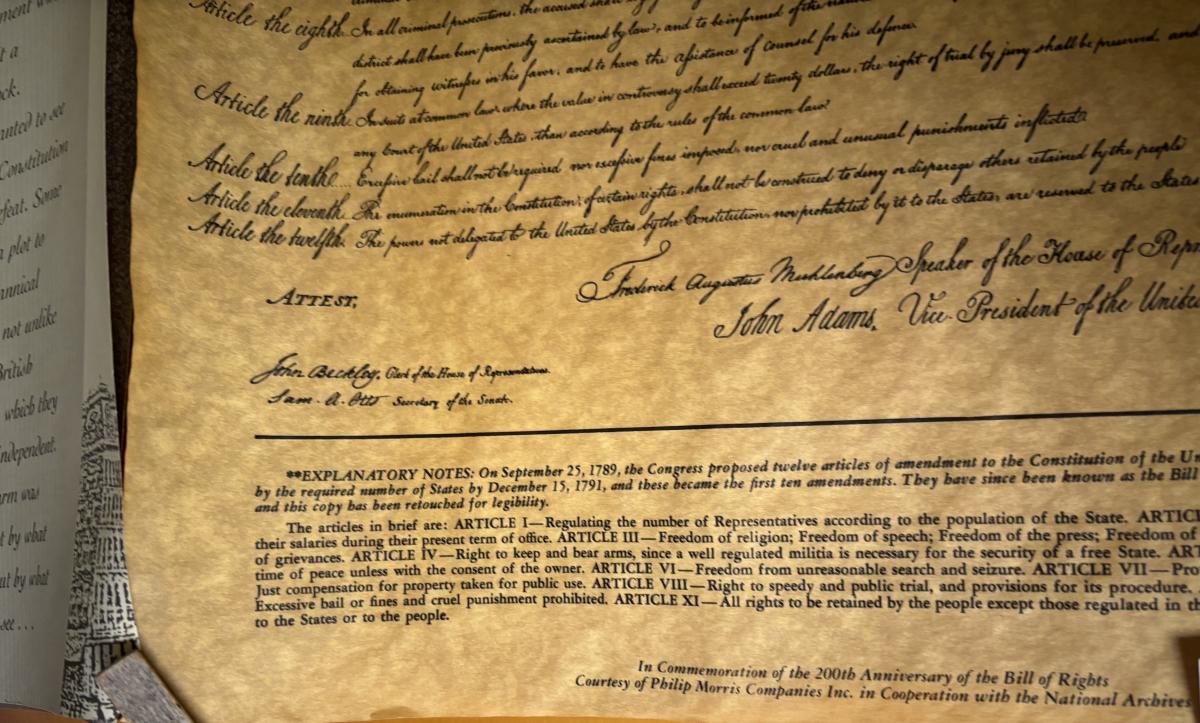 ment w
t a
ck.
anted to see
Constitution
efeat. Some
a plot to
annical
not unlike
British
which they
independent.
rm was
t by what
ut by what
see . . .
Article the eighth. In all criminal prosecutions, the accused shall
district shall have been previously ascertained by law, and to be informed of the
for obtaining witnesses in his favor, and to have the assistance of counsel for his defence.
Article the ninth. In suits at common law, where the value in controversy shall exceed twenty dollars, the right of trial by jury shall be preserved, and
any Court of the United States, than according to the rules of the common law.
Article the tenth. Excessive bail shall not be required, nor excessive fines imposed, nor cruel and unusual punishments inflicted.
Article the eleventh. The enumeration in the Constitution, of certain rights, shall not be construed to deny or disparage others retained by the people
Article the twelfth. The powers not delegated to the United States by the Constitution, nor prohibited by it to the States, are reserved to the States
Frederick Augustus Muhlenberg Speaker of the House of Repr
ATTEST,
John Adams, Vice-President of the Unite
John Beckley, Clerk of the House of Representatives.
Sam. A. Otis Secretary of the Senate.
**EXPLANATORY NOTES: On September 25, 1789, the Congress proposed twelve articles of amendment to the Constitution of the Un
by the required number of States by December 15, 1791, and these became the first ten amendments. They have since been known as the Bill
and this copy has been retouched for legibility.
The articles in brief are: ARTICLE I—Regulating the number of Representatives according to the population of the State. ARTIC
their salaries during their present term of office. ARTICLE III—Freedom of religion; Freedom of speech; Freedom of the press; Freedom of
of grievances. ARTICLE IV—Right to keep and bear arms, since a well regulated militia is necessary for the security of a free State. ART
time of peace unless with the consent of the owner. ARTICLE VI—Freedom from unreasonable search and seizure. ARTICLE VII—Pro
Just compensation for property taken for public use. ARTICLE VIII—Right to speedy and public trial, and provisions for its procedure.
Excessive bail or fines and cruel punishment prohibited. ARTICLE XI—All rights to be retained by the people except those regulated in th
to the States or to the people.
In Commemoration of the 200th Anniversary of the Bill of Rights
Courtesy of Philip Morris Companies Inc. in Cooperation with the National Archives